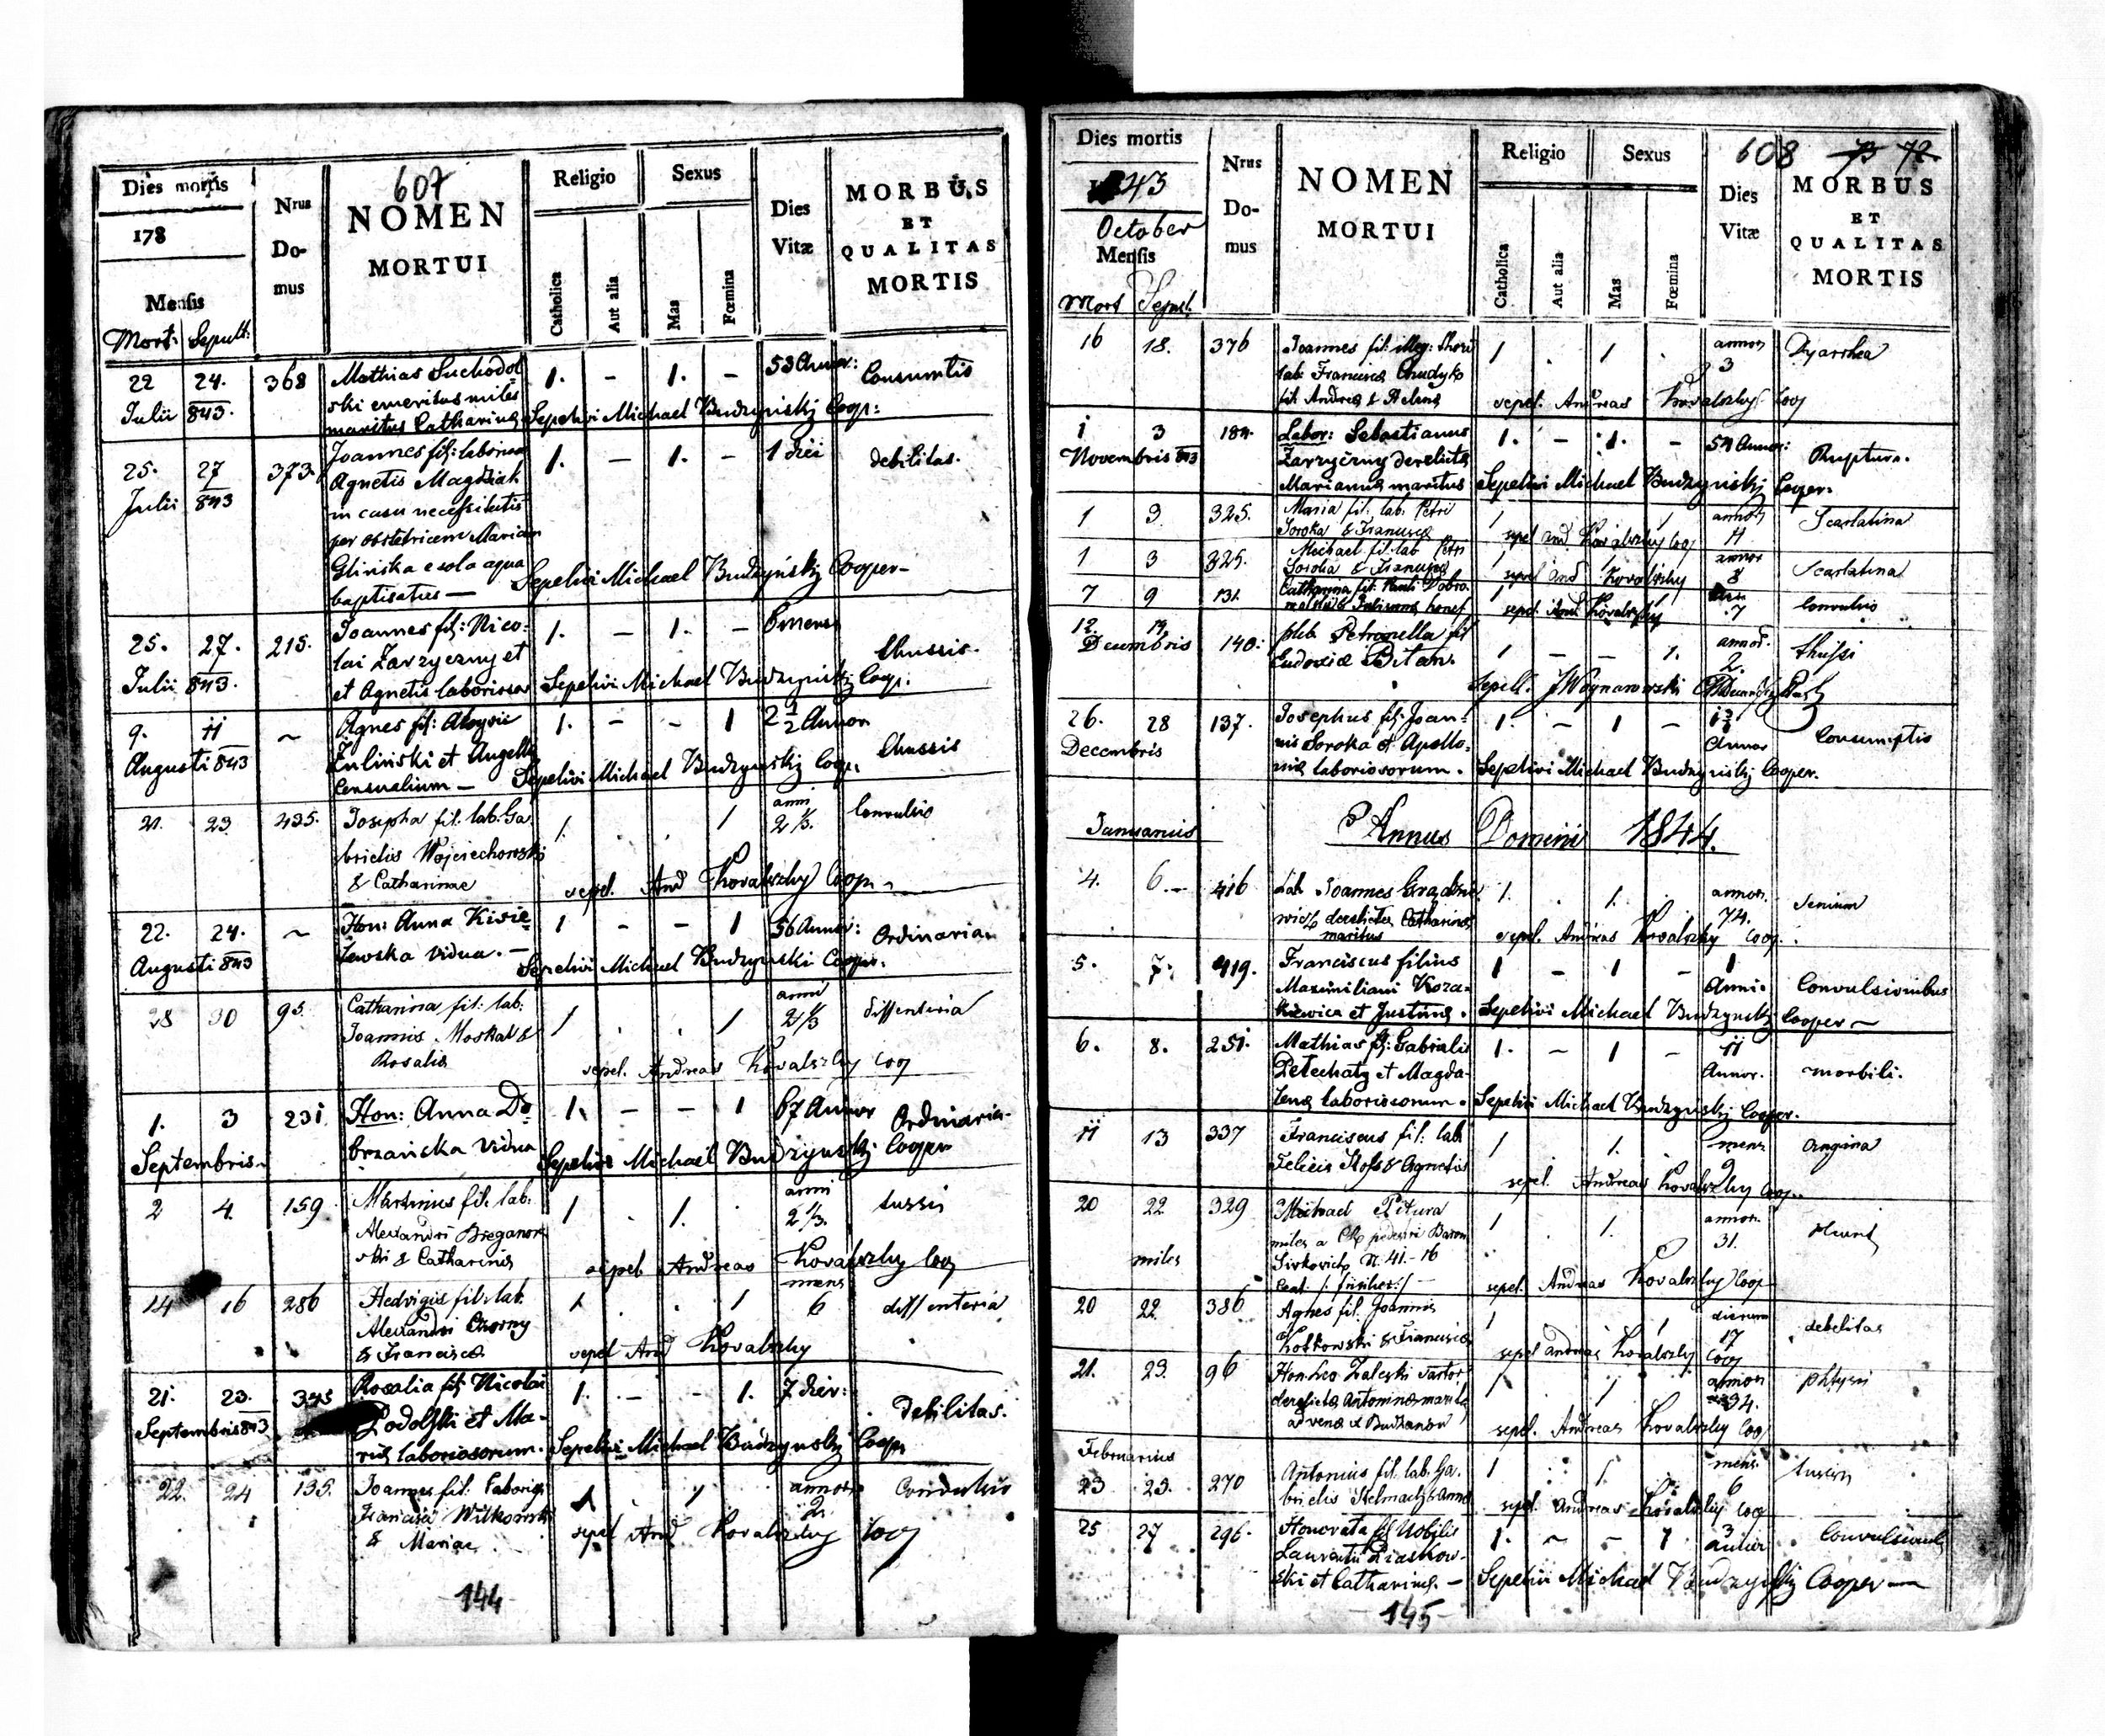 607
Dies mortis
178
Mensis
Mort: Sepult:
Nrus Do- mus
NOMEN
MORTUI
Religio
Catholica
Aut alia
Sexus
Mas
Fœmina
Dies Vitæ
MORBUS
ET
QUALITAS
MORTIS
22 24. 368 Mathias Suchodol 1. - 1. - 53 Annor: Consumtio
Julii 843. ski emeritus miles
maritus Catharinæ Sepelivi Michael Budzynskij Coop:
25. 27 373. Joannes fil: laboriosa 1. - 1. - 1 diei debilitas.
Julii 843 Agnetis Magdziak
in casu necessitatis
per obstetricem Mariam
Glinska e sola aqua
baptisatus — Sepelivi Michael Budzyński Cooper-
25. 27. 215. Joannes fil: Nico- 1. - 1. - 6 mens
lai Zarzyczny et thussis.
Julii 843. et Agnetis laboriosor Sepelivi Michael Budzynskij Coop.
9. 11 ~ Agnes fil: Aloysii 1. - - 1 2 1/2 Annor
Augusti 843 Zulinski et Angellæ thussis
Censualium — Sepelivi Michael Budzynskij Coop.
21. 23. 435. Josepha fil: lab. Ga 1. . . 1 anni 2 1/3. Convulsio
brielis Wojciechowski
& Catharinae sepel. And Kovalszky Coop.
22. 24. ~ Hon: Anna Kisie 1 - - 1 56 Annor: Ordinaria
Augusti 843 lewska vidua. — Sepelivi Michael Budzynski Cooper.
28 30 95. Catharina fil: lab. 1 . . 1 anni 2 1/3 dissenteria
Joannis Moskal &
Rosalia sepel. Andreas Kovalszky coop
1. 3 231 Hon: Anna Do 1. - - 1 67 Annor Ordinaria.
Septembris brzanska vidua Sepelivi Michael Budzynskij Cooper
2 4. 159 Martinus fil. lab. 1 . 1. . anni 2 1/3. tussis
Alexandri
ski & Catharinæ sepel Andreas Kovalszky Coop
14 16 286 Hedvigis fil. lab. 1 . . 1 mens 6 dissenteria
Alexandri Czorny
& Francisca sepel And Kovalszky
21. 23. 345 Rosalia fil: Nicolai 1. - - 1. 7 dier:
Septembris 843 Podolski et Ma- debilitas.
riæ laboriosorum. Sepelivi Michael Budzynskij Cooper
22. 24 135. Joannes fil. laborios 1 . 1 annor. 2. Convulsio
Francisci Witkowski
& Mariae. sepel And Kovalszky Coop
144
608 73 72.
Dies mortis
1843
October
Mensis
Mort Sepul.
Nrus Do- mus
NOMEN
MORTUI
Religio
Catholica
Aut alia
Sexus
Mas
Fœmina
Dies Vitæ
MORBUS
ET
QUALITAS
MORTIS
16 18. 376 Joannes fil: illeg: thori 1 . 1 . annor 3 Dyarrhea
lab. Francisca Chudyk
fil. Andreæ & Helenæ sepel. Andreas Kovalszky Coop
1 3 184. Labor: Sebastianus 1. - 1. - 54 Annor:
Novembris 843 Zarzyczny derelictæ Ruptura.
Mariannæ maritus Sepelivi Michael Budzynskij Cooper.
1 3. 325. Maria fil. lab. Petri 1 1 annor 11 Scarlatina
Soroka & Francisca sepel And Kovalszky Coop
1 3 325. Michael fil. lab Petri annor 8 Scarlatina
Soroka & Francisca sepel And Kovalszky
7 9 131. Catharina fil. Pauli Dobro 1 1 7 Convulsio
sepel And Kovalszky
12. 14. 140. pleb. Petronella fil 1 - - 1. annor. 2. thussi
Decembris Eudoxiæ Bitan.
Sepell. J Woynarowski
26. 28 137. Josephus fil: Joan- 1. - 1 - 13 Annor Consumptio
Decembris nis Soroka et Apollo-
niæ laboriosorum. Sepelivi Michael Budzynskij Cooper.
Januarius Annus Domini 1844.
4. 6.- 416 Lab Joannes 1. . 1. annor. 74. Senium
derelictæ Catharinæ
maritus sepel. Andreas Kovalszky Coop.
5. 7. 419. Franciscus filius 1 - 1 - 1 Anni. Convulsionibus
Maximiliani Koza-
kiewicz et Justinæ. Sepelivi Michael Budzynskij Cooper ~
6. 8. 251. Mathias fil: Gabrielis 1. - 1 - 11 Annor. morbili.
Petechaty et Magda-
lenæ laboriosorum. Sepelivi Michael Budzynskij Cooper.
11 13 337 Franciscus fil: lab. 1 1. mens 9 angina
Felicis & Agnetis sepel. Andreas Kovalszky Coop.
20 22 329 Michael Pitura 1 . 1. annor. 31.
miles miles a pedestri Baron
N. 41.-16
sepel. Andreas Kovalszky Coop
20 22. 386 Agnes fil. Joannis 1 1 dierum 17 debelitas
Kotkowski & Francisca sepel Andreas Kovalszky Coop
21. 23. 96 Hon. Leo Zaleski sartor 1 . 1 annor 34. phtysis
derelictæ Antoninæ maritus
advena e Budzanow sepel. Andreas Kovalszky Coop
Februarius
23 25. 270 Antonius fil. lab. Ga- 1 . 1. mens. 6 tussis
brielis Helmach & Annæ sepel. Andreas Kovalszky Coop
25 27 296. Honorata fil Nobilis 1. ~ - 1 3
Laurentii Piaskow-
ski et Catharinæ. — Sepelivi Michael Budzynskij Cooper —
145